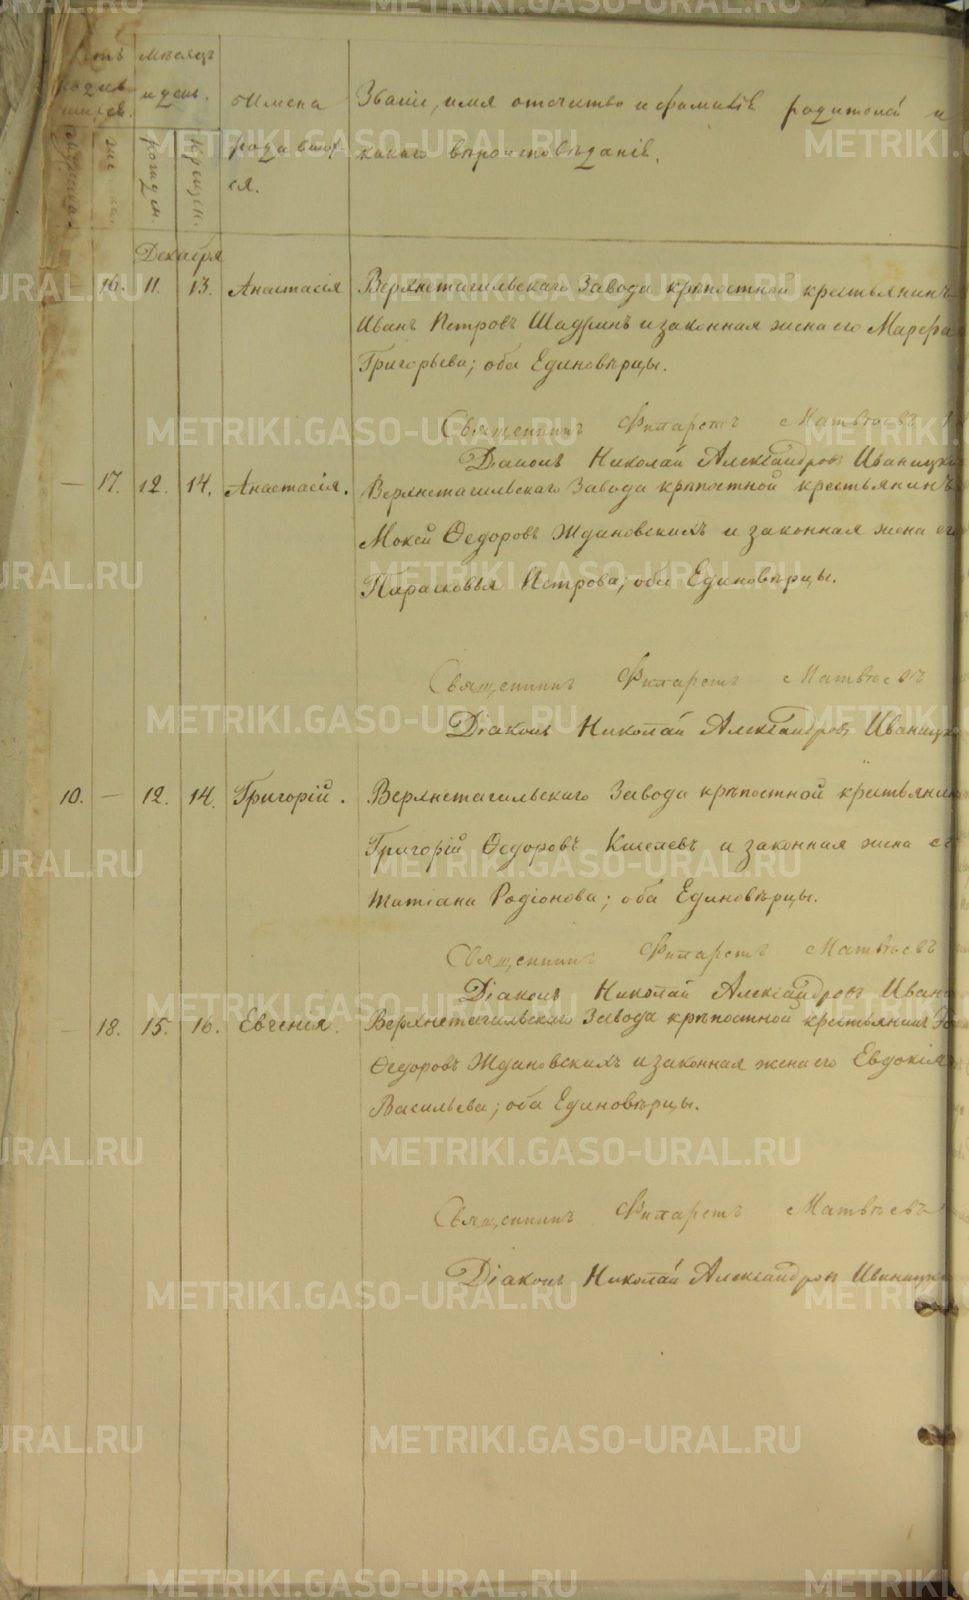 мѣсяцъ
и день.
Имена
родивших
ся.
Званіе, имя отечество и фамилія родителей и
какого вѣроисповѣданія.
рожден.
крещен.
Декабря
16. 11. 13. Анастасія Верхнетагильскаго Завода крѣпостной крестьянинъ
Иванъ Петровъ Шадринъ и законная жена его Марфа
Григорьева; оба Единовѣрцы.
Священникъ Филаретъ Матвѣевъ
Діаконъ Николай Александровъ Иваницк
— 17. 12. 14. Анастасія. Верхнетагильскаго Завода крѣпостной крестьянинъ
Мокей Ѳедоровъ Ждановскихъ и законная жена его
Парасковья Петрова; оба Единовѣрцы.
Священникъ Филаретъ Матвѣевъ
Діаконъ Николай Александровъ Иваницк
10. — 12. 14. Григорій. Верхнетагильскаго Завода крѣпостной крестьянин
Григорій Ѳедоровъ Киселевъ и законная жена ег
Татіана Родіонова; оба Единовѣрцы.
Священникъ Филаретъ Матвѣевъ
Діаконъ Николай Александровъ Иван
— 18. 15. 16. Евгенія. Верхнетагильскаго Завода крѣпостной крестьянинъ
Ѳедоровъ Ждановскихъ и законная жена его Евдокія
Васильева; оба Единовѣрцы.
Священникъ Филаретъ Матвѣевъ
Діаконъ Николай Александровъ Иваницк
METRIKI.GASO-URAL.RU